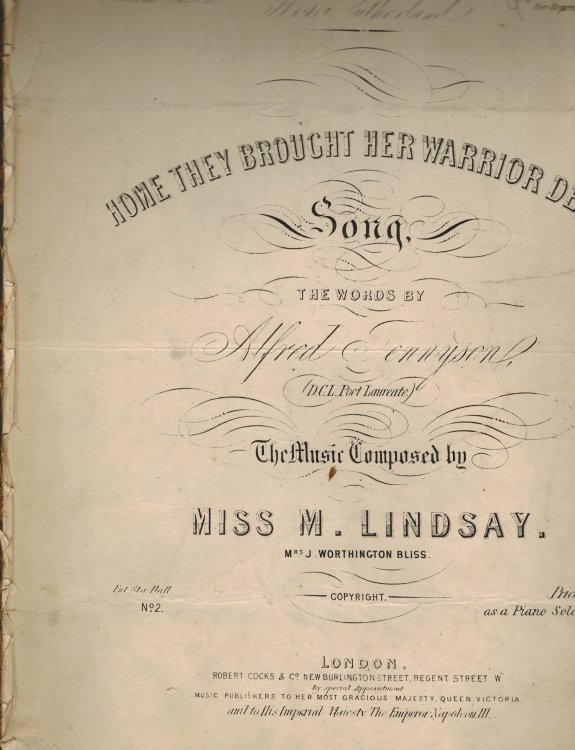 Sutherland
HOME THEY BROUGHT HER WARRIOR DE
Song,
THE WORDS BY
Alfred Tennyson,
(D.C.L. Poet Laureate)
The Music Composed by
MISS M. LINDSAY.
MRS J. WORTHINGTON BLISS.
Ent. Sta. Hall
No 2.
COPYRIGHT.
Pric
as a Piano Solo
LONDON,
ROBERT COCKS & Co. NEW BURLINGTON STREET, REGENT STREET W
by special Appointment
MUSIC PUBLISHERS TO HER MOST GRACIOUS MAJESTY, QUEEN VICTORIA
and to His Imperial Majesty The Emperor Napoleon III.